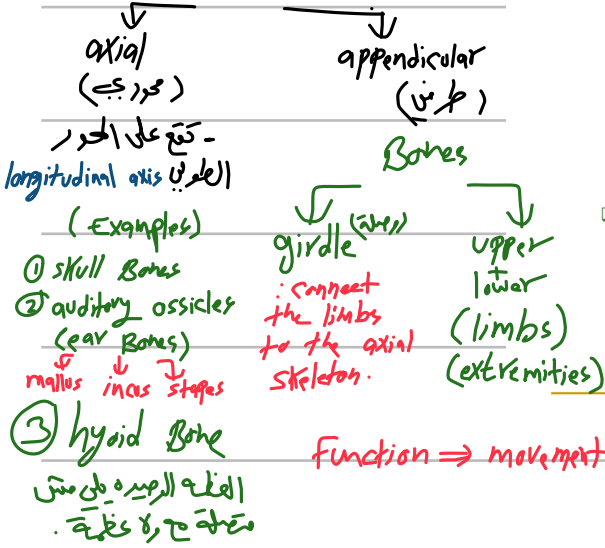 axial
(محوري)
- تقع على المحور
الطولي longitudinal axis
(Examples)
① skull Bones
② auditory ossicles
(ear Bones)
mallus incus stapes
③ hyoid Bone
العظمة الوحيدة يلي مش
متصلة مع ولا عظمة .
appendicular
(طرفي)
Bones
girdle (رابطة)
: connect
the limbs
to the axial
skeleton.
upper
+
lower
(limbs)
(extremities)
Function ⇒ movement